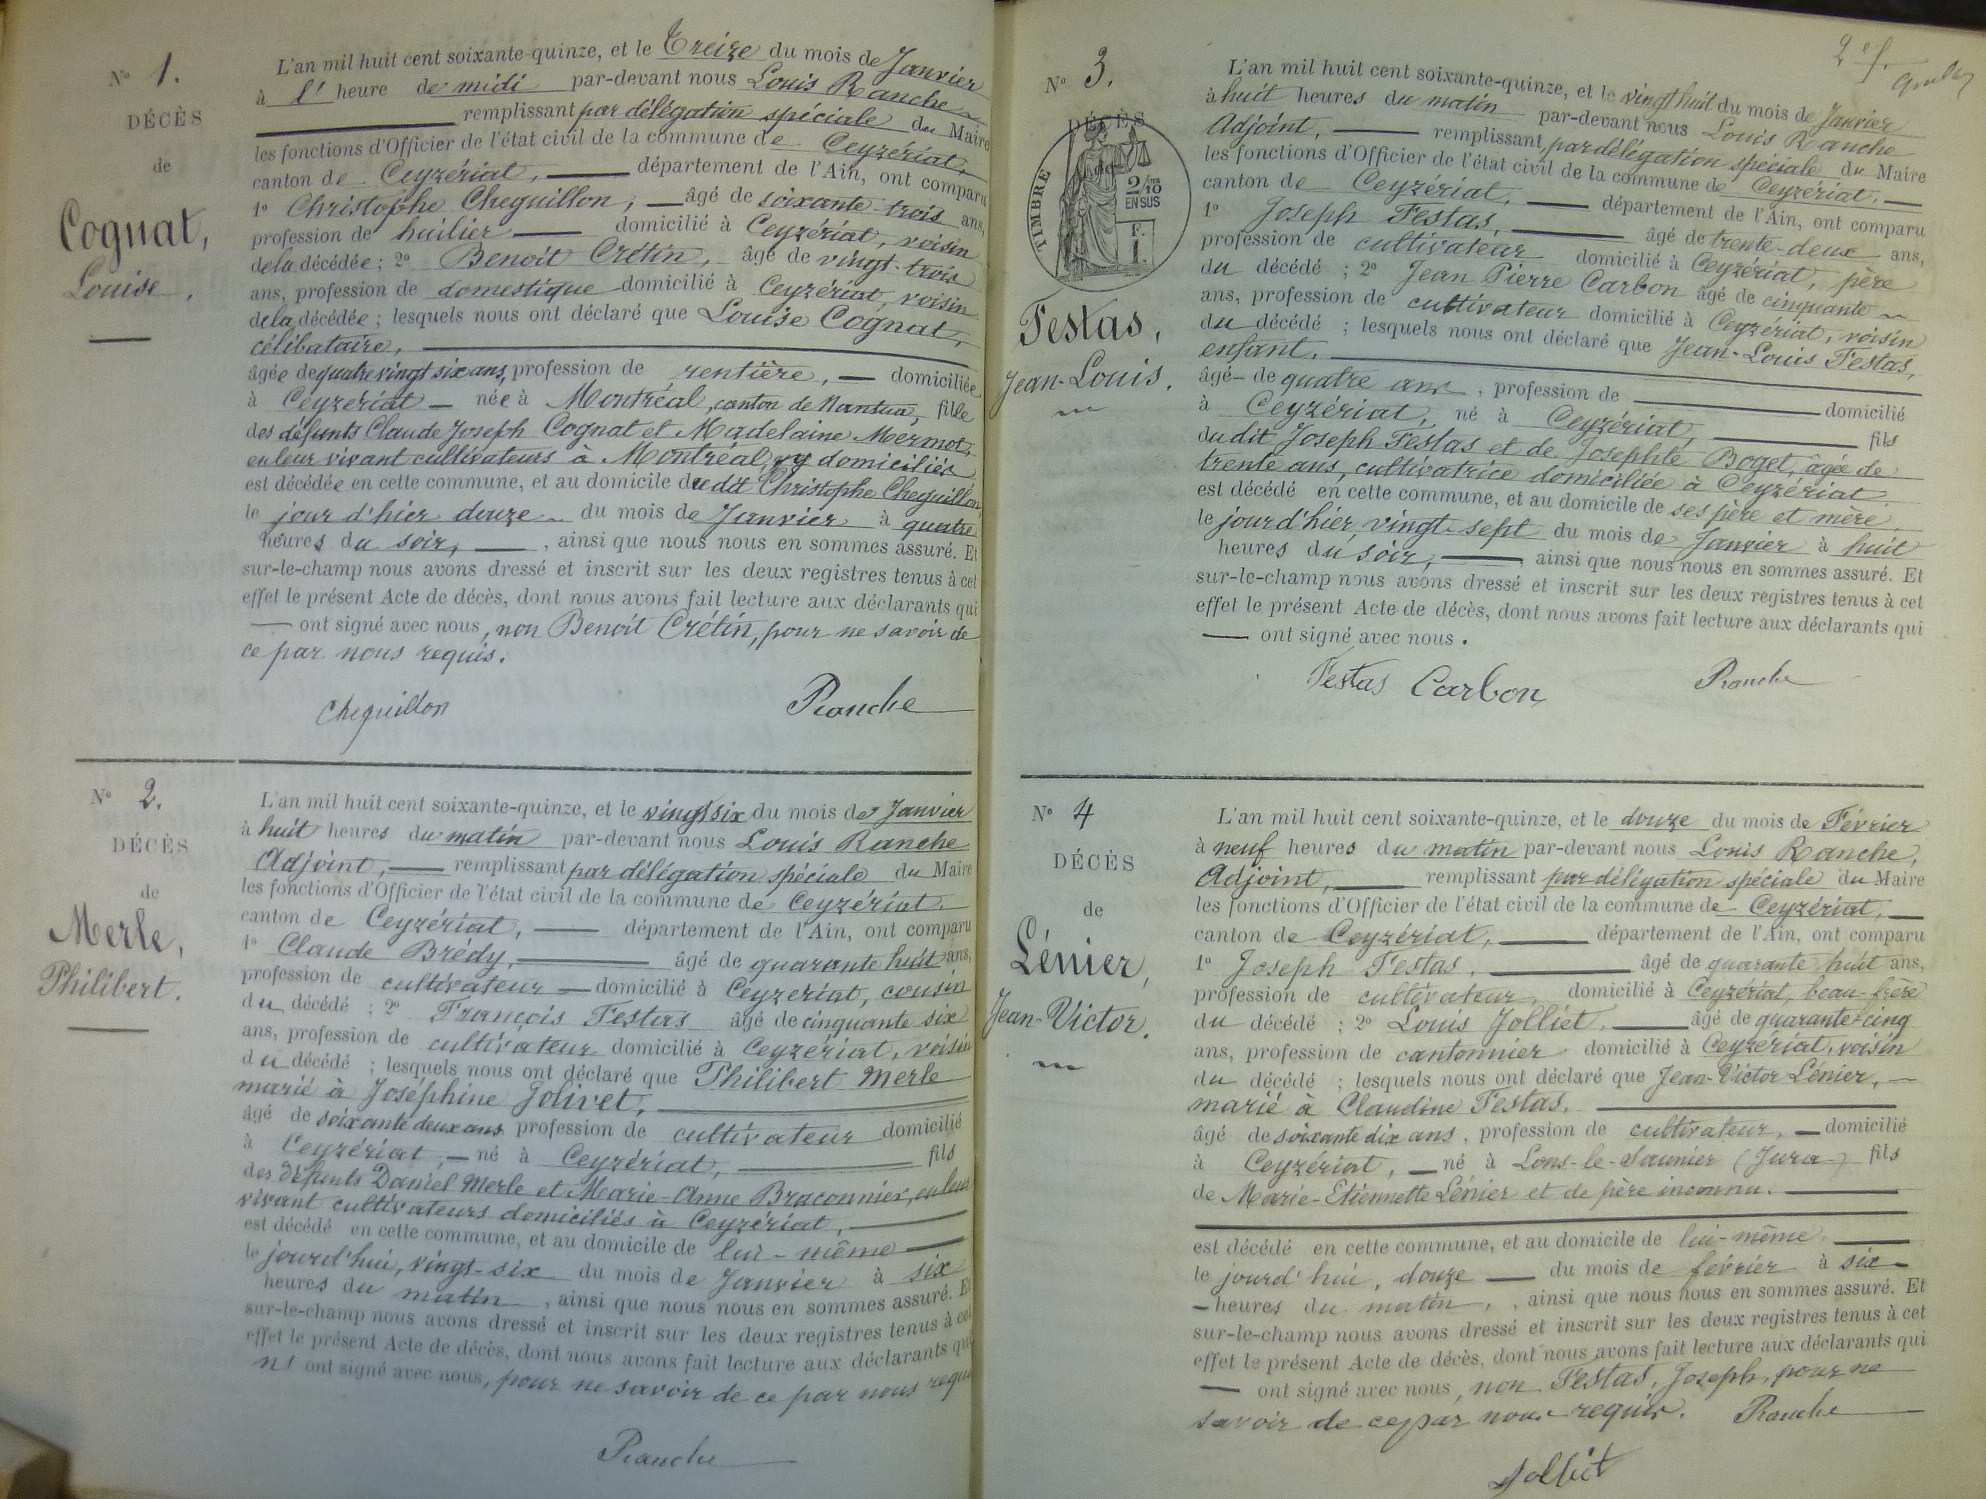 N° 1.
DÉCÈS
de
Cognat,
Louise.
L'an mil huit cent soixante-quinze, et le Treize du mois de Janvier
à l' heure de midi par-devant nous Louis Ranche
remplissant par délégation spéciale du Maire
les fonctions d'Officier de l'état civil de la commune de Ceyzériat,
canton de Ceyzériat, département de l'Ain, ont comparu
1° Christophe Cheguillon, âgé de soixante-trois ans,
profession de huilier domicilié à Ceyzériat, voisin
de la décédée ; 2° Benoit Crétin, âgé de vingt-trois
ans, profession de domestique domicilié à Ceyzériat, voisin
de la décédée ; lesquels nous ont déclaré que Louise Cognat,
célibataire,
âgée de quatre vingt six ans, profession de rentière, domiciliée
à Ceyzériat née à Montréal, canton de Nantua, fille
des défunts Claude Joseph Cognat et Madelaine Mermot,
en leur vivant cultivateurs à Montréal, y domiciliés
est décédée en cette commune, et au domicile du dit Christophe Cheguillon
le jour d'hier douze du mois de Janvier à quatre
heures du soir, , ainsi que nous nous en sommes assuré. Et
sur-le-champ nous avons dressé et inscrit sur les deux registres tenus à cet
effet le présent Acte de décès, dont nous avons fait lecture aux déclarants qui
ont signé avec nous, non Benoit Crétin, pour ne savoir de
ce par nous requis.
Cheguillon Ranche
N° 2.
DÉCÈS
de
Merle,
Philibert.
L'an mil huit cent soixante-quinze, et le vingt six du mois de Janvier
à huit heures du matin par-devant nous Louis Ranche
Adjoint, remplissant par délégation spéciale du Maire
les fonctions d'Officier de l'état civil de la commune de Ceyzériat.
canton de Ceyzériat, département de l'Ain, ont comparu
1° Claude Brédy, âgé de quarante huit ans,
profession de cultivateur domicilié à Ceyzériat, cousin
du décédé ; 2° François Festas âgé de cinquante six
ans, profession de cultivateur domicilié à Ceyzériat, voisin
du décédé ; lesquels nous ont déclaré que Philibert Merle
marié à Joséphine Jolivet,
âgé de soixante deux ans profession de cultivateur domicilié
à Ceyzériat, né à Ceyzériat, fils
des défunts Daniel Merle et Marie-Anne Braconnier, en leur
vivant cultivateurs domiciliés à Ceyzériat,
est décédé en cette commune, et au domicile de lui-même
le jourd'hui, vingt-six du mois de Janvier à six
heures du matin , ainsi que nous nous en sommes assuré. Et
sur-le-champ nous avons dressé et inscrit sur les deux registres tenus à cet
effet le présent Acte de décès, dont nous avons fait lecture aux déclarants qui
n' ont signé avec nous, pour ne savoir de ce par nous requis
Ranche
2e f.
N° 3.
DÉCÈS
TIMBRE
2/10
EN SUS
F.
1.
Festas,
Jean-Louis.
L'an mil huit cent soixante-quinze, et le vingt huit du mois de Janvier
à huit heures du matin par-devant nous Louis Ranche
Adjoint, remplissant par délégation spéciale du Maire
les fonctions d'Officier de l'état civil de la commune de Ceyzériat.
canton de Ceyzériat, département de l'Ain, ont comparu
1° Joseph Festas, âgé de trente-deux ans,
profession de cultivateur domicilié à Ceyzériat, père
du décédé ; 2° Jean Pierre Carbon âgé de cinquante
ans, profession de cultivateur domicilié à Ceyzériat, voisin
du décédé ; lesquels nous ont déclaré que Jean-Louis Festas,
enfant.
âgé de quatre ans , profession de domicilié
à Ceyzériat, né à Ceyzériat, fils
du dit Joseph Festas et de Josephte Boget, âgée de
trente ans, cultivatrice domiciliée à Ceyzériat
est décédé en cette commune, et au domicile de ses père et mère.
le jourd'hier, vingt-sept du mois de Janvier à huit
heures du soir, ainsi que nous nous en sommes assuré. Et
sur-le-champ nous avons dressé et inscrit sur les deux registres tenus à cet
effet le présent Acte de décès, dont nous avons fait lecture aux déclarants qui
ont signé avec nous.
Festas Carbon Ranche
N° 4
DÉCÈS
de
Lénier,
Jean-Victor.
L'an mil huit cent soixante-quinze, et le douze du mois de Février
à neuf heures du matin par-devant nous Louis Ranche,
Adjoint, remplissant par délégation spéciale du Maire
les fonctions d'Officier de l'état civil de la commune de Ceyzériat,
canton de Ceyzériat, département de l'Ain, ont comparu
1° Joseph Festas, âgé de quarante huit ans,
profession de cultivateur, domicilié à Ceyzériat, beau-frère
du décédé ; 2° Louis Jolliet, âgé de quarante-cinq
ans, profession de cantonnier domicilié à Ceyzériat, voisin
du décédé ; lesquels nous ont déclaré que Jean-Victor Lénier,
marié à Claudine Festas.
âgé de soixante dix ans, profession de cultivateur, domicilié
à Ceyzériat, né à Lons-le-Saunier (Jura) fils
de Marie-Etiennette Lénier et de père inconnu.
est décédé en cette commune, et au domicile de lui-même.
le jourd'hui, douze du mois de février à six
heures du matin, , ainsi que nous nous en sommes assuré. Et
sur-le-champ nous avons dressé et inscrit sur les deux registres tenus à cet
effet le présent Acte de décès, dont nous avons fait lecture aux déclarants qui
ont signé avec nous, non Festas, Joseph, pour ne
savoir de ce par nous requis. Ranche
Jolliet